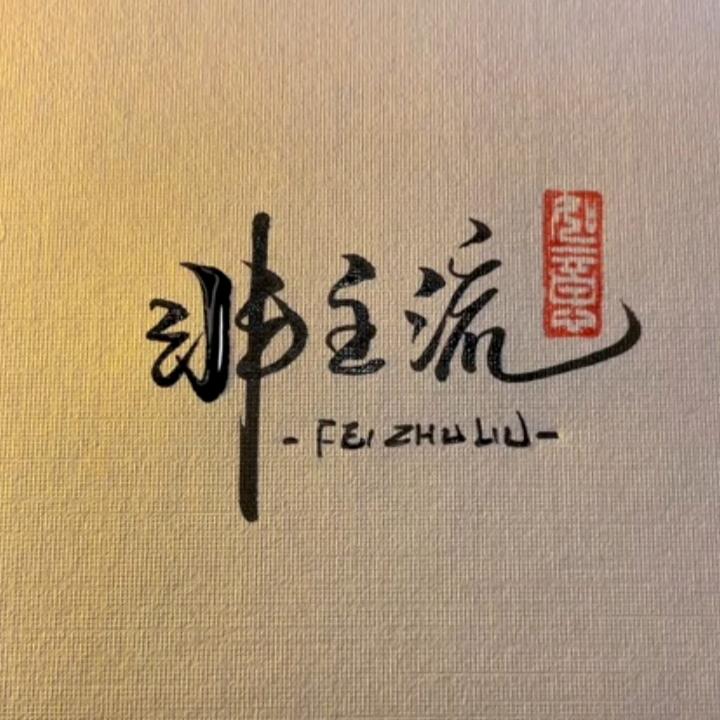 非主流
- FEI ZHU LIU -